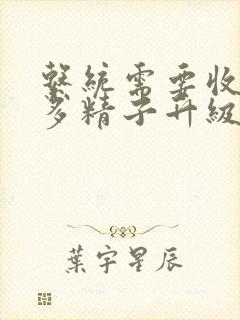 繫統需要收
多精子升級
葉宇星辰